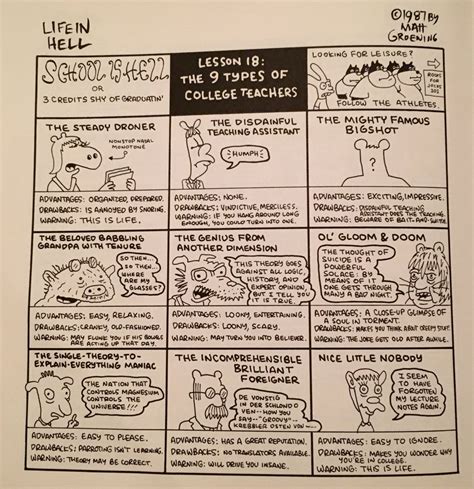 LIFE IN
HELL
©1987 BY
MATT
GROENING
SCHOOL IS HELL
OR
3 CREDITS SHY OF GRADUATIN'
LESSON 18:
THE 9 TYPES OF
COLLEGE TEACHERS
LOOKING FOR LEISURE?
ROCKS
FOR
JOCKS
302
FOLLOW THE ATHLETES.
THE STEADY DRONER
NONSTOP NASAL
MONOTONE
ADVANTAGES: ORGANIZED, PREPARED.
DRAWBACKS: IS ANNOYED BY SNORING.
WARNING: THIS IS LIFE.
THE DISDAINFUL
TEACHING ASSISTANT
HUMPH
ADVANTAGES: NONE.
DRAWBACKS: VINDICTIVE, MERCILESS.
WARNING: IF YOU HANG AROUND LONG
ENOUGH, YOU COULD TURN INTO ONE.
THE MIGHTY FAMOUS
BIGSHOT
?
ADVANTAGES: EXCITING, IMPRESSIVE.
DRAWBACKS: DISDAINFUL TEACHING
ASSISTANT DOES THE TEACHING.
WARNING: BEWARE OF BAIT-AND-SWITCH.
THE BELOVED BABBLING
GRANDPA WITH TENURE
SO THEN...
SO THEN...
WHERE
ARE MY
GLASSES?
ADVANTAGES: EASY, RELAXING.
DRAWBACKS: CRANKY, OLD-FASHIONED.
WARNING: MAY FLUNK YOU IF HIS BOWELS
ARE ACTING UP THAT DAY.
THE GENIUS FROM
ANOTHER DIMENSION
THIS THEORY GOES
AGAINST ALL LOGIC,
HISTORY, AND
EXPERT OPINION,
BUT I TELL YOU
IT IS TRUE.
ADVANTAGES: LOONY, ENTERTAINING.
DRAWBACKS: LOONY, SCARY.
WARNING: MAY TURN YOU INTO BELIEVER.
OL' GLOOM & DOOM
THE THOUGHT OF
SUICIDE IS A
POWERFUL
SOLACE: BY
MEANS OF IT
ONE GETS THROUGH
MANY A BAD NIGHT.
ADVANTAGES: A CLOSE-UP GLIMPSE OF
A SOUL IN TORMENT.
DRAWBACKS: MAKES YOU THINK ABOUT CREEPY STUFF.
WARNING: THE JOKE GETS OLD AFTER AWHILE.
THE SINGLE-THEORY-TO-
EXPLAIN-EVERYTHING MANIAC
THE NATION THAT
CONTROLS MAGNESIUM
CONTROLS THE
UNIVERSE!!!
ADVANTAGES: EASY TO PLEASE.
DRAWBACKS: PARROTING ISN'T LEARNING.
WARNING: THEORY MAY BE CORRECT.
THE INCOMPREHENSIBLE
BRILLIANT
FOREIGNER
DE VONSTIG
IN DER SCHLONDO
VEN--HOW YOU
SAY--"GROOVY"--
KREBBLER OSTEN VON...
ADVANTAGES: HAS A GREAT REPUTATION.
DRAWBACKS: NO TRANSLATORS AVAILABLE.
WARNING: WILL DRIVE YOU INSANE.
NICE LITTLE NOBODY
I SEEM
TO HAVE
FORGOTTEN
MY LECTURE
NOTES AGAIN.
ADVANTAGES: EASY TO IGNORE.
DRAWBACKS: MAKES YOU WONDER WHY
YOU'RE IN COLLEGE.
WARNING: THIS IS LIFE.